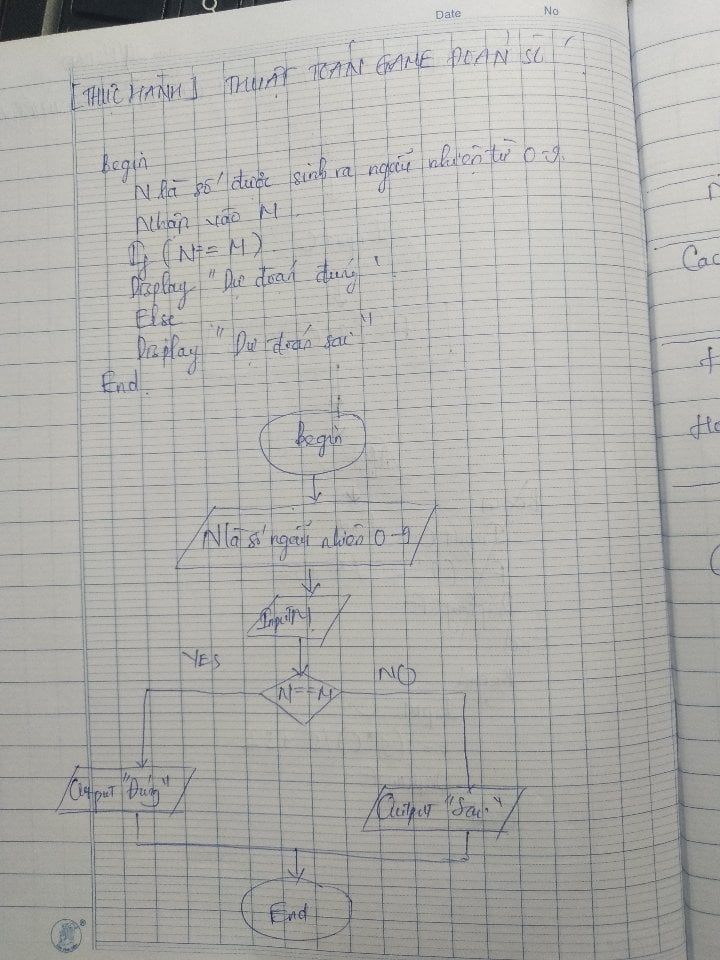 Date No
[THỰC HÀNH] THUẬT TOÁN GAME ĐOÁN SỐ
Begin
N là số được sinh ra ngẫu nhiên từ 0-9.
Nhập vào M
If (N == M)
Display "Dự đoán đúng"
Else
Display "Dự đoán sai"
End.
Begin
N là số ngẫu nhiên 0-9
Input M
YES
NO
N==M
Output "Đúng"
Output "Sai"
End